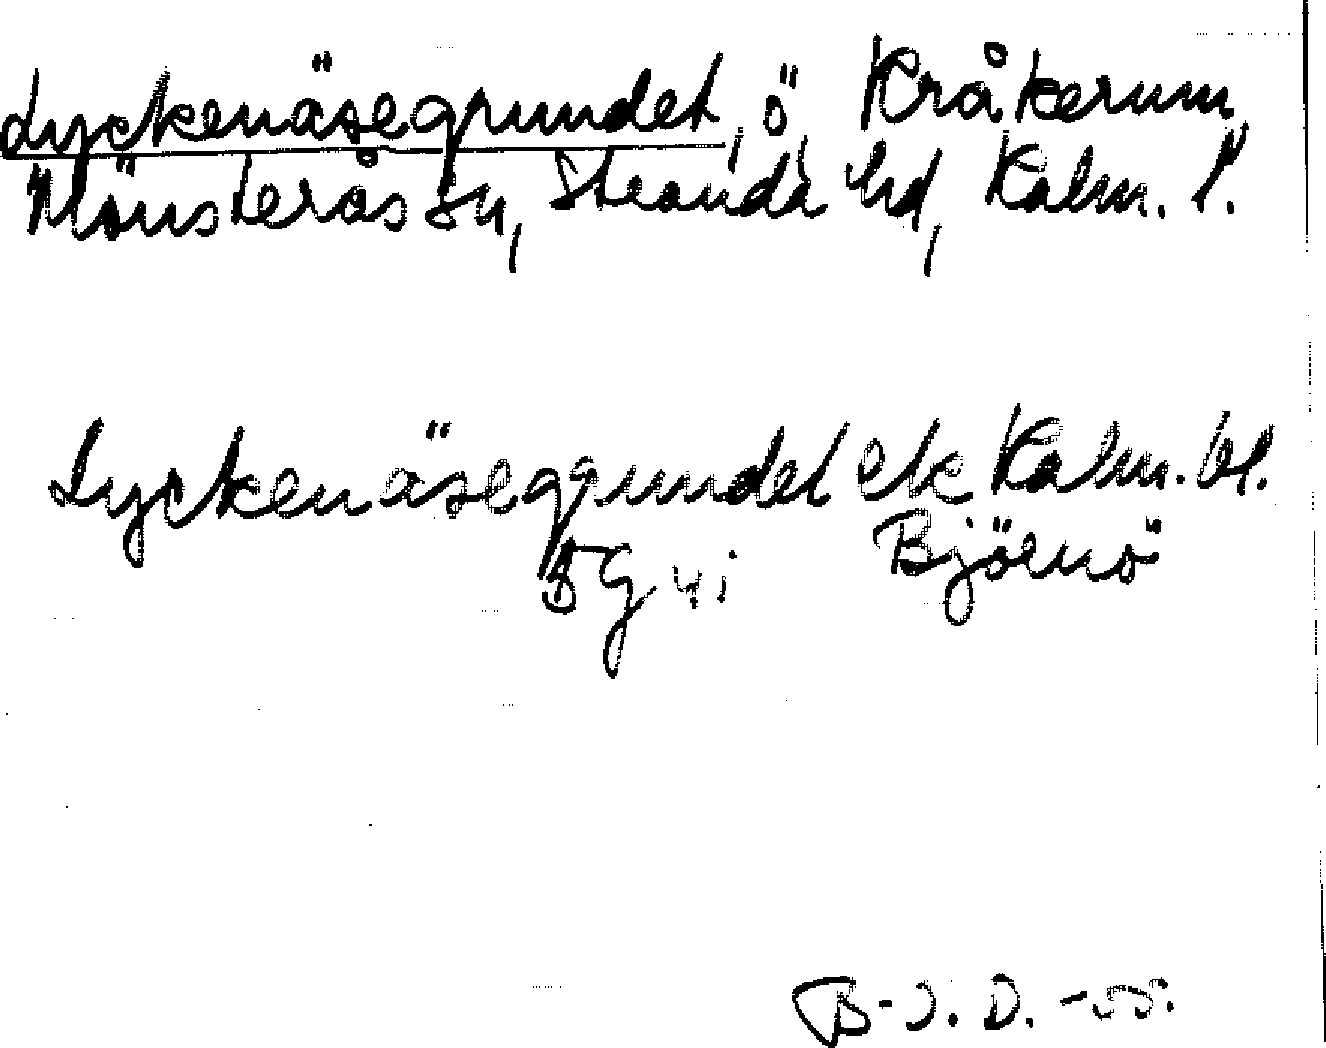 Lyckenäsegrundet, ö, Kråkerum,
Mönsterås sn, Stranda hd, Kalm. l.
Lyckenäsegrundet ek Kalm. bl.
5 g 4 i Björnö
B-J. D. -55.